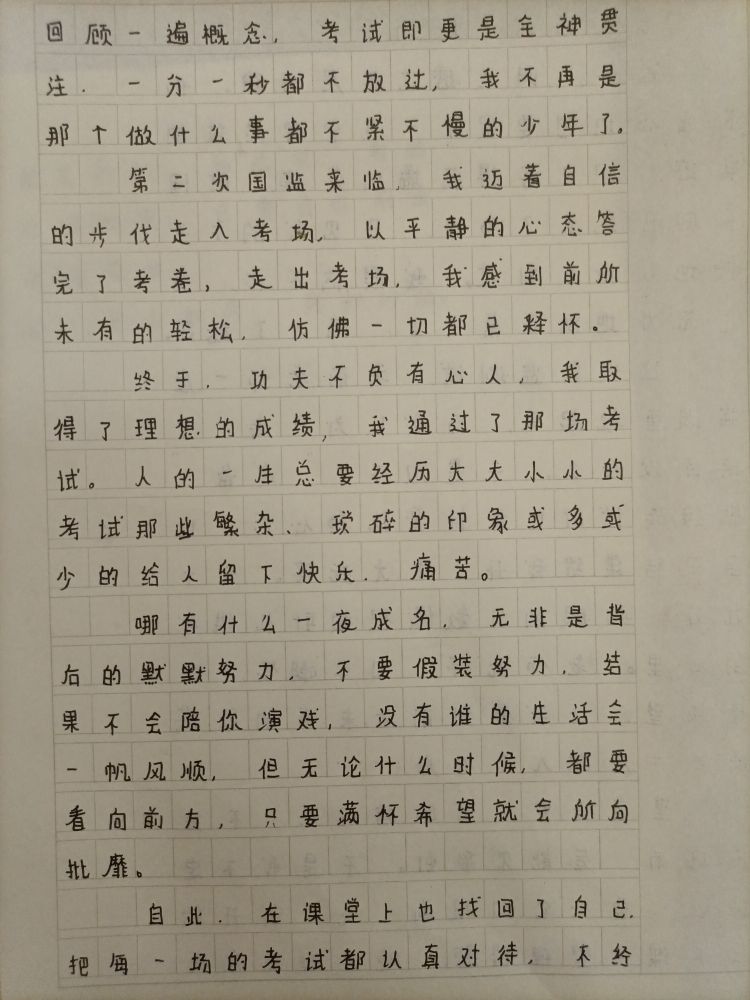 回顾一遍概念，考试即更是全神贯
注．一分一秒都不放过，我不再是
那个做什么事都不紧不慢的少年了。
第二次国监来临．我迈着自信
的步伐走入考场．以平静的心态答
完了考卷，走出考场．我感到前所
未有的轻松．仿佛一切都已释怀。
终于．功夫不负有心人，我取
得了理想的成绩，我通过了那场考
试。人的一生总要经历大大小小的
考试那些繁杂、琐碎的印象或多或
少的给人留下快乐．痛苦。
哪有什么一夜成名．无非是背
后的默默努力，不要假装努力．结
果不会陪你演戏，没有谁的生活会
一帆风顺，但无论什么时候，都要
看向前方，只要满怀希望就会所向
批靡。
自此．在课堂上也找回了自己．
把每一场的考试都认真对待，不经